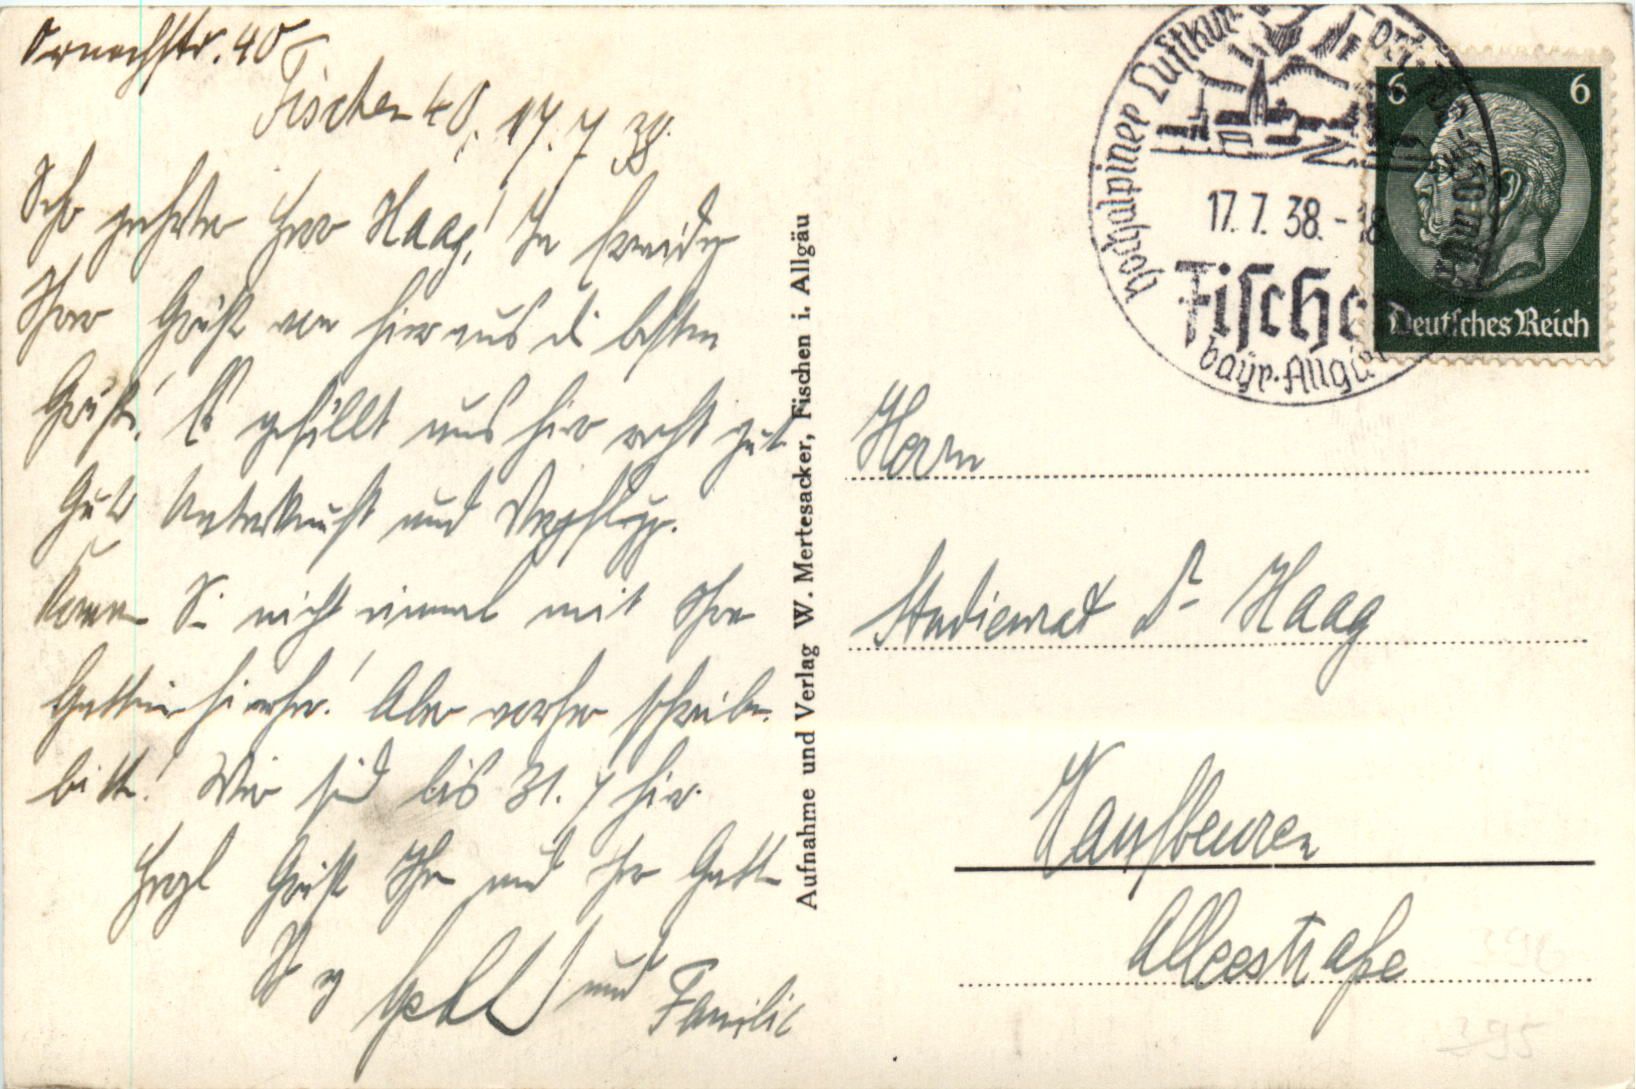 Fischen 40, 17. 7 38.
Sehr geehrter Herr Haag! In
Ihrer Grüße von hier aus die besten
Grüße! Es gefällt uns hier recht gut
Gute Unterkunft und Verpflegg.
Kommen Sie nicht einmal mit Ihrer
Gattin hierher! Aber vorher schreiben
bitte! Wir sind bis 31. 7 hier.
Herzl Grüße Ihnen und Ihrer Gattin
und Familie
Aufnahme und Verlag W. Mertesacker, Fischen i. Allgäu
Hochalpiner Luftkurort
17. 7. 38. - 18
Fischen
bayr. Allgäu
6 6
Deutsches Reich
Herrn
Studienrat Dr Haag
Kaufbeuren
Alleestraße
395